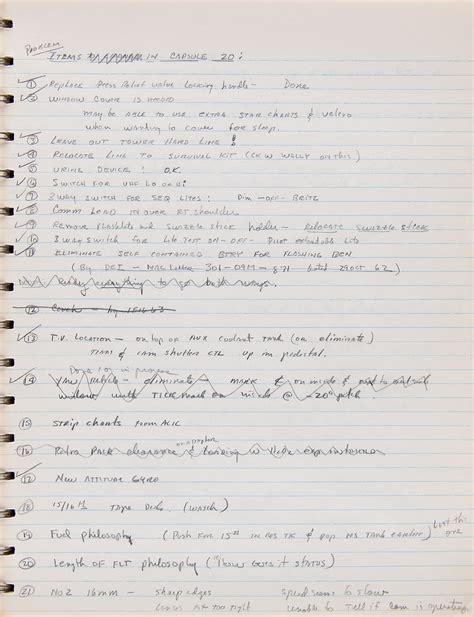 Problem
Items in Capsule 20:
① Replace Press Relief valve locking handle - Done
② Window Cover is needed
may be able to use extra star charts & velcro
when wanting to cover for sleep.
③ Leave out tower hard line!
④ Relocate line to survival kit (ck w Wally on this)
⑤ Urine device: O.K.
⑥ Switch for UHF Lo or Hi
⑦ 3 way switch for SEQ Lites: Dim - off - Brite
⑧ Comm lead in over RT shoulder
⑨ Remove flashlite and swizzle stick holder - relocate swizzle stick
⑩ 3 way switch for Lite Test on - off -
⑪ Eliminate self contained btry for flashing Bcn
(By DEI - Mac letter 301-09M-871 dated 29 Oct 62)
everything to go both ways.
⑫ Couch -
⑬ T.V. location - on top of aux coolant tank (or eliminate)
cam shutter ctl up in pedestal.
⑭ Yaw reticle - eliminate - mark
window with tick mark on middle @ -20° pitch
⑮ Strip charts from ACIC
⑯ Retro Pack clearance &
⑰ New Attitude Gyro
⑱ 15/16 Tape Deck. (watch)
⑲ Fuel philosophy (Push for 15# in RCS TK &
one
⑳ Length of FLT philosophy ("How goes it status)
㉑ No 2 16mm - sharp edges speed seems to slow
too tight unable to tell if cam is operating